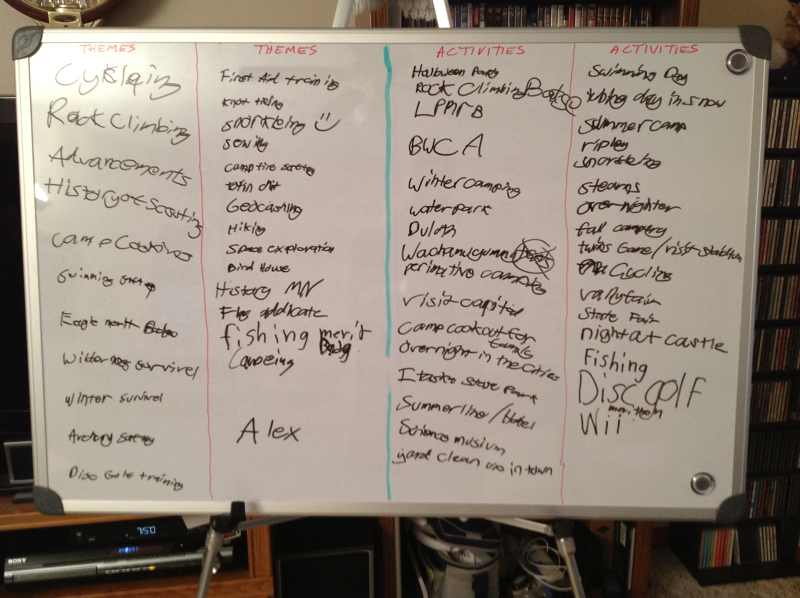 THEMES
Cyklqing
Rock Climbing
Advancements
History of Scouting
Camp Cooking
Swimming
Eagle merit
Wilderness survivel
Winter survivel
Archery
Disc Gole training
THEMES
First Aid training
Knot tieing
Snorkleing
Campfire
Geocashing
Hiking
Space exploration
Bird House
History MN
Flag
fishing merit
Badg
Canoeing
Alex
ACTIVITIES
Halloween Party
Rock Climbing Badge
BWCA
Winter camping
water park
Duluth
visit capitul
Camp cookout for
families
Overnight in the Cities
Itaska State Park
Summer line / Hotel
Science musium
yard clean up in town
ACTIVITIES
Swimming Day
tubing day in snow
Summer camp
ripley
snorkleing
stearns
over nighter
fall camping
twins Game / visit stadium
Cycling
vallyfair
State Fair
night at castle
Fishing
Disc golf
Wii